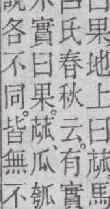 果地上曰蓏馬
呂氏春秋云。有實
木實曰果。蓏瓜瓠
說各不同。皆無不